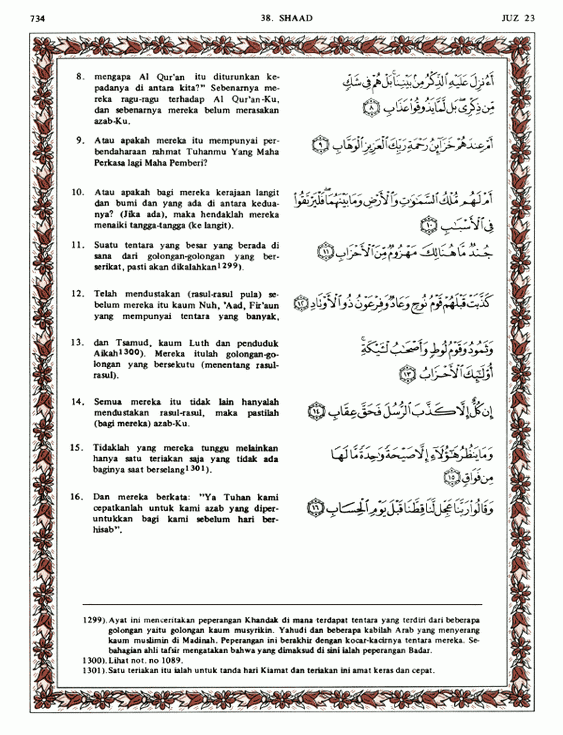 734 38. SHAAD JUZ 23
8. mengapa Al Qur'an itu diturunkan ke-
padanya di antara kita?" Sebenarnya me-
reka ragu-ragu terhadap Al Qur'an-Ku,
dan sebenarnya mereka belum merasakan
azab-Ku.
أَءُنزِلَ عَلَيْهِ ٱلذِّكْرُ مِنۢ بَيْنِنَا ۚ بَلْ هُمْ فِى شَكٍّ
مِّن ذِكْرِى ۖ بَل لَّمَّا يَذُوقُوا۟ عَذَابِ ٨
9. Atau apakah mereka itu mempunyai per-
bendaharaan rahmat Tuhanmu Yang Maha
Perkasa lagi Maha Pemberi?
أَمْ عِندَهُمْ خَزَآئِنُ رَحْمَةِ رَبِّكَ ٱلْعَزِيزِ ٱلْوَهَّابِ ٩
10. Atau apakah bagi mereka kerajaan langit
dan bumi dan yang ada di antara kedua-
nya? (Jika ada), maka hendaklah mereka
menaiki tangga-tangga (ke langit).
أَمْ لَهُم مُّلْكُ ٱلسَّمَٰوَٰتِ وَٱلْأَرْضِ وَمَا بَيْنَهُمَا ۖ فَلْيَرْتَقُوا۟
فِى ٱلْأَسْبَٰبِ ١٠
11. Suatu tentara yang besar yang berada di
sana dari golongan-golongan yang ber-
serikat, pasti akan dikalahkan1299).
جُندٌ مَّا هُنَالِكَ مَهْزُومٌ مِّنَ ٱلْأَحْزَابِ ١١
12. Telah mendustakan (rasul-rasul pula) se-
belum mereka itu kaum Nuh, 'Aad, Fir'aun
yang mempunyai tentara yang banyak,
كَذَّبَتْ قَبْلَهُمْ قَوْمُ نُوحٍ وَعَادٌ وَفِرْعَوْنُ ذُو ٱلْأَوْتَادِ ١٢
13. dan Tsamud, kaum Luth dan penduduk
Aikah1300). Mereka itulah golongan-go-
longan yang bersekutu (menentang rasul-
rasul).
وَثَمُودُ وَقَوْمُ لُوطٍ وَأَصْحَٰبُ لْـَٔيْكَةِ ۚ
أُو۟لَٰٓئِكَ ٱلْأَحْزَابُ ١٣
14. Semua mereka itu tidak lain hanyalah
mendustakan rasul-rasul, maka pastilah
(bagi mereka) azab-Ku.
إِن كُلٌّ إِلَّا كَذَّبَ ٱلرُّسُلَ فَحَقَّ عِقَابِ ١٤
15. Tidaklah yang mereka tunggu melainkan
hanya satu teriakan saja yang tidak ada
baginya saat berselang1301).
وَمَا يَنظُرُ هَٰٓؤُلَآءِ إِلَّا صَيْحَةً وَٰحِدَةً مَّا لَهَا
مِن فَوَاقٍ ١٥
16. Dan mereka berkata: "Ya Tuhan kami
cepatkanlah untuk kami azab yang diper-
untukkan bagi kami sebelum hari ber-
hisab".
وَقَالُوا۟ رَبَّنَا عَجِّل لَّنَا قِطَّنَا قَبْلَ يَوْمِ ٱلْحِسَابِ ١٦
1299). Ayat ini menceritakan peperangan Khandak di mana terdapat tentara yang terdiri dari beberapa
golongan yaitu golongan kaum musyrikin. Yahudi dan beberapa kabilah Arab yang menyerang
kaum muslimin di Madinah. Peperangan ini berakhir dengan kocar-kacirnya tentara mereka. Se-
bahagian ahli tafsir mengatakan bahwa yang dimaksud di sini ialah peperangan Badar.
1300). Lihat not. no 1089.
1301). Satu teriakan itu ialah untuk tanda hari Kiamat dan teriakan ini amat keras dan cepat.